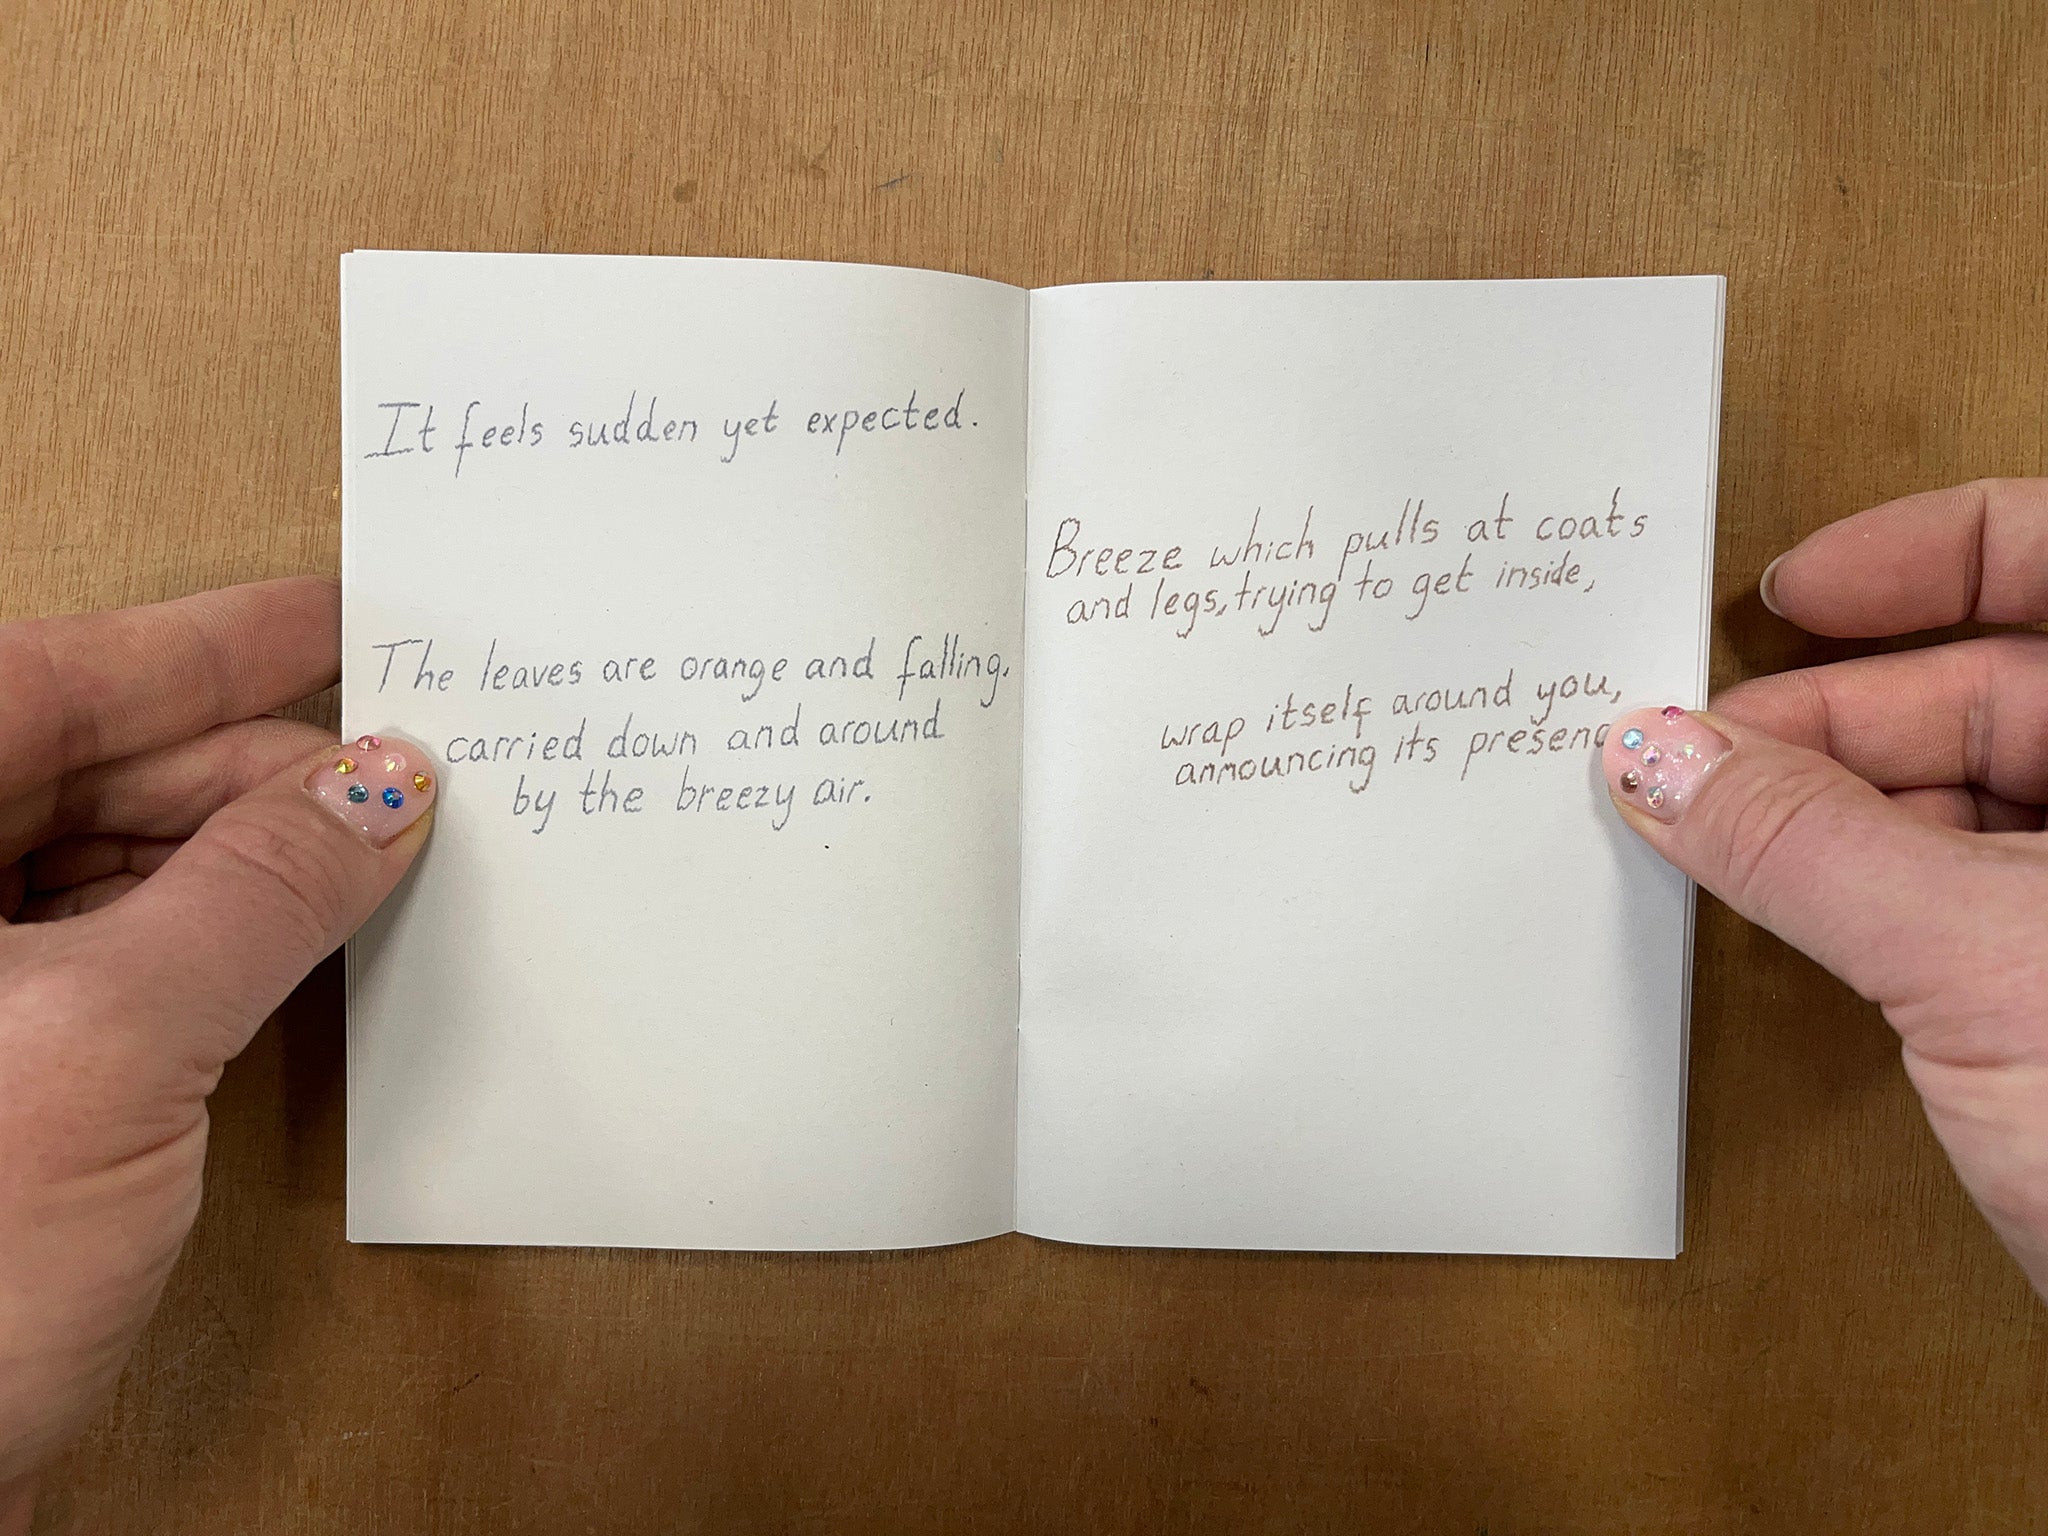 It feels sudden yet expected.
The leaves are orange and falling,
carried down and around
by the breezy air.
Breeze which pulls at coats
and legs, trying to get inside,
wrap itself around you,
announcing its